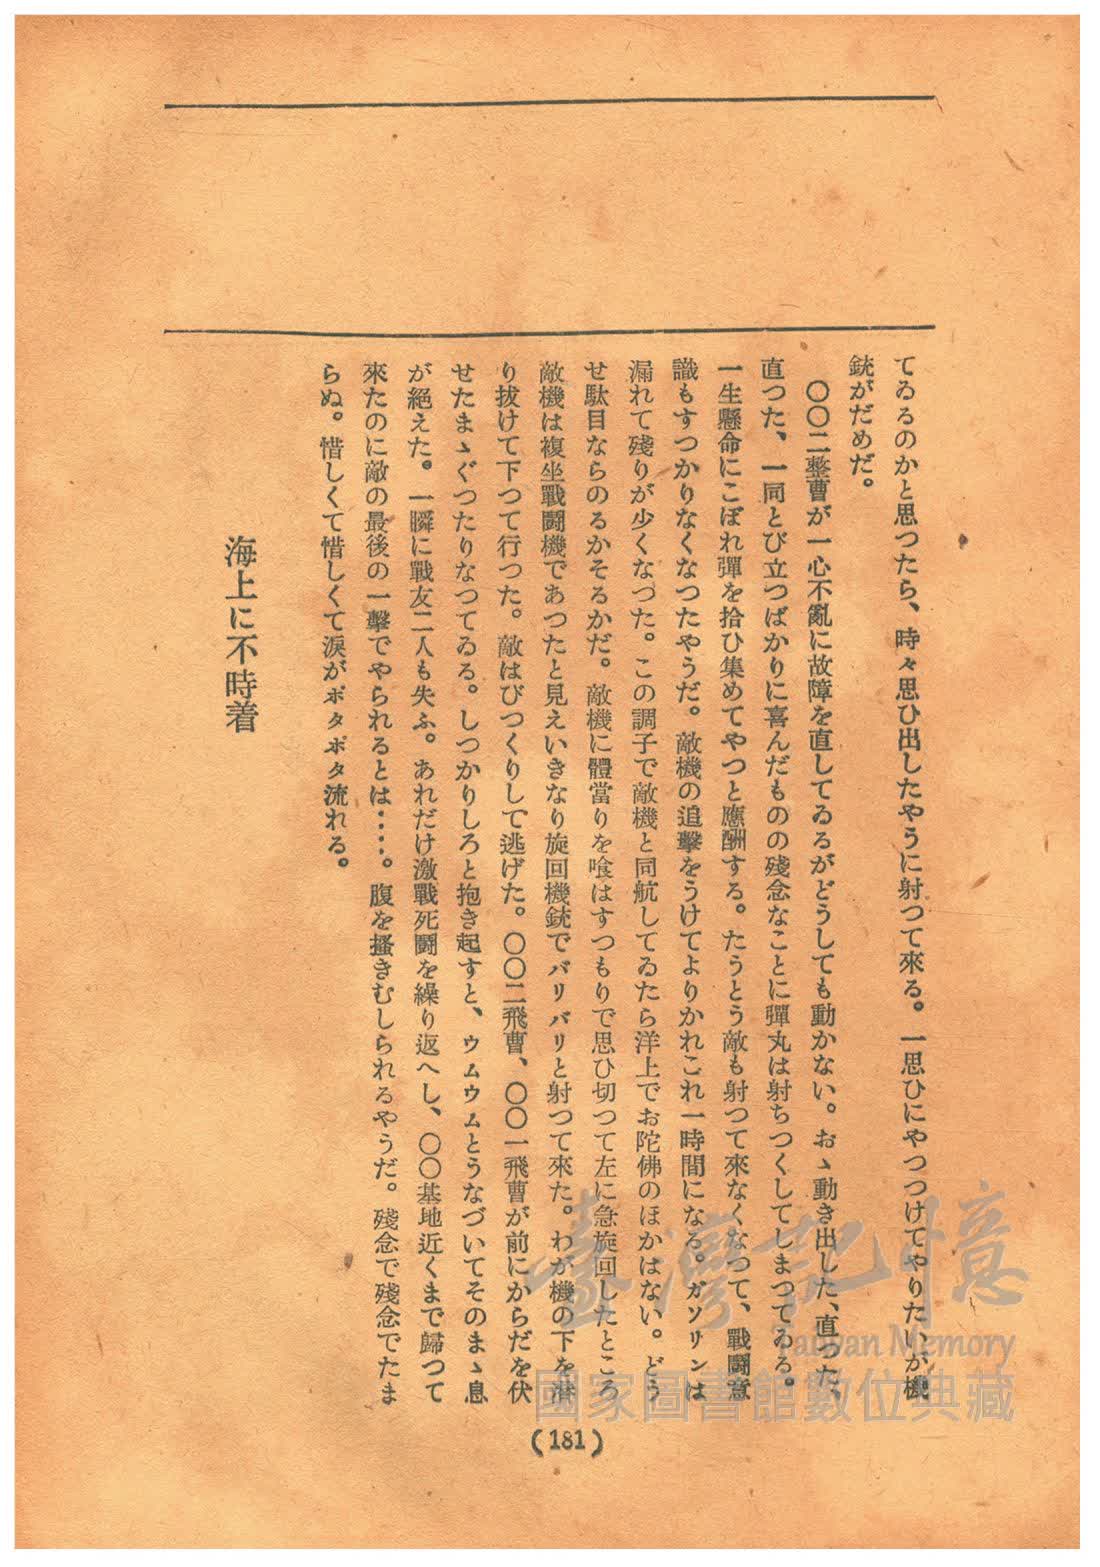 てゐるのかと思つたら、時々思ひ出したやうに射つて來る。一思ひにやつつけてやりたいが機
銃がだめだ。
〇〇二整曹が一心不亂に故障を直してゐるがどうしても動かない。おゝ動き出した、直つた、
直つた、一同とび立つばかりに喜んだものの殘念なことに彈丸は射ちつくしてしまつてゐる。
一生懸命にこぼれ彈を拾ひ集めてやつと應酬する。たうとう敵も射つて來なくなつて、戰鬪意
識もすつかりなくなつたやうだ。敵機の追擊をうけてよりかれこれ一時間になる。ガソリンは
漏れて殘りが少くなつた。この調子で敵機と同航してゐたら洋上でお陀佛のほかはない。どう
せ駄目ならのるかそるかだ。敵機に體當りを喰はすつもりで思ひ切つて左に急旋回したところ
敵機は複坐戰鬪機であつたと見えいきなり旋回機銃でバリバリと射つて來た。わが機の下を潜
り拔けて下つて行つた。敵はびつくりして逃げた。〇〇二飛曹、〇〇一飛曹が前にからだを伏
せたまゝぐつたりなつてゐる。しつかりしろと抱き起すと、ウムウムとうなづいてそのまゝ息
が絕えた。一瞬に戰友二人も失ふ。あれだけ激戰死鬪を繰り返へし、〇〇基地近くまで歸つて
來たのに敵の最後の一擊でやられるとは‥‥。腹を搔きむしられるやうだ。殘念で殘念でたま
らぬ。惜しくて惜しくて淚がポタポタ流れる。
海上に不時着
(181)
臺灣記憶
Taiwan Memory
國家圖書館數位典藏